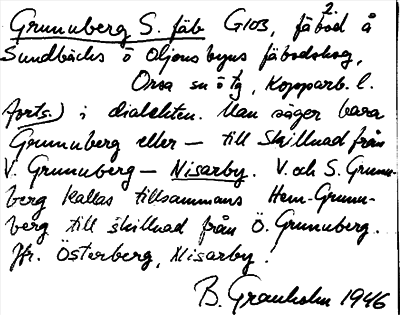 Grunuberg S. fäb G103, fäbod å
2.
Sundbäcks ö Oljonsbyns fäbodskog,
Orsa sn ö tg, Kopparb. l.
forts.) i dialekten. Man säger bara
Grunuberg eller – till skillnad från
V. Grunuberg – Nisarby. V. och S. Grunu-
berg kallas tillsammans Hem-Grunu-
berg till skillnad från Ö. Grunuberg.
Jfr. Österberg, Nisarby.
B. Granholm 1946